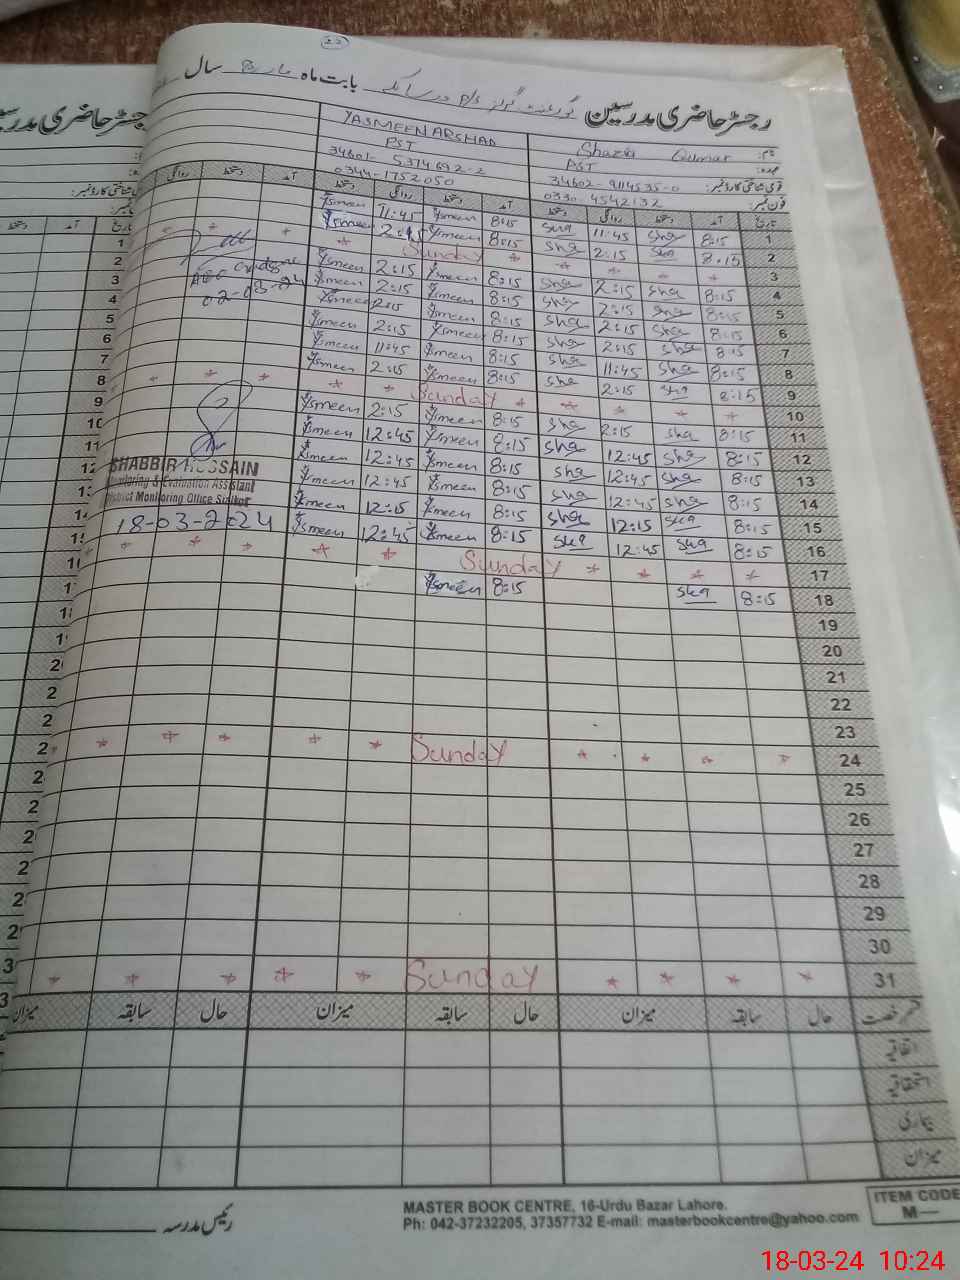 22
رجسٹر حاضری مدرسین گورنمنٹ گرلز P/S بابت ماہ مارچ سال
نام: Shazia Qumar YASMEEN ARSHAD
عہدہ: PST PST
قومی شناختی کارڈ نمبر: 34602-9114535-0 34601-5374692-2
فون نمبر: 0330-4542132 0344-1752050
تاریخ آمد دستخط روانگی دستخط آمد دستخط روانگی دستخط آمد دستخط روانگی
1 8:15 sha 11:45 sha 8:15 Ysmeen 11:45 Ysmeen
2 8:15 sha 2:15 sha 8:15 Ysmeen 2:15 Ysmeen
3 * * * * * Sunday * * * *
4 8:15 sha 2:15 sha 8:15 Ysmeen 2:15 Ysmeen
5 8:15 sha 2:15 sha 8:15 Ysmeen 2:15 Ysmeen
02-03-24
6 8:15 sha 2:15 sha 8:15 Ysmeen 2:15 Ysmeen
7 8:15 sha 2:15 sha 8:15 Ysmeen 2:15 Ysmeen
8 8:15 sha 11:45 sha 8:15 Ysmeen 11:45 Ysmeen
9 8:15 sha 2:15 sha 8:15 Ysmeen 2:15 Ysmeen
10 * * * * * Sunday * * * * *
11 8:15 sha 2:15 sha 8:15 Ysmeen 2:15 Ysmeen
12 8:15 sha 12:45 sha 8:15 Ysmeen 12:45 Ysmeen
13 8:15 sha 12:45 sha 8:15 Ysmeen 12:45 Ysmeen
14 8:15 sha 12:45 sha 8:15 Ysmeen 12:45 Ysmeen
15 8:15 sha 12:15 sha 8:15 Ysmeen 12:15 Ysmeen
16 8:15 sha 12:45 sha 8:15 Ysmeen 12:45 Ysmeen
SHABBIR HUSSAIN
Monitoring & Evaluation Assistant
District Monitoring Office Sialkot
18-03-2024
17 * * * * Sunday * * * * * *
18 8:15 sha 8:15 Ysmeen
19
20
21
22
23
24 * * * * Sunday * * * * *
25
26
27
28
29
30
31 * * * * Sunday * * * * *
قسم رخصت حال سابقہ میزان حال سابقہ میزان حال سابقہ میزان
اتفاقیہ
استحقاقیہ
بیماری
میزان
رئیس مدرسہ
MASTER BOOK CENTRE, 16-Urdu Bazar Lahore.
Ph: 042-37232205, 37357732 E-mail: masterbookcentre@yahoo.com
ITEM CODE
M—
رجسٹر حاضری
تاریخ آمد دستخط
1
2
3
4
5
6
7
8
9
10
11
18-03-24 10:24